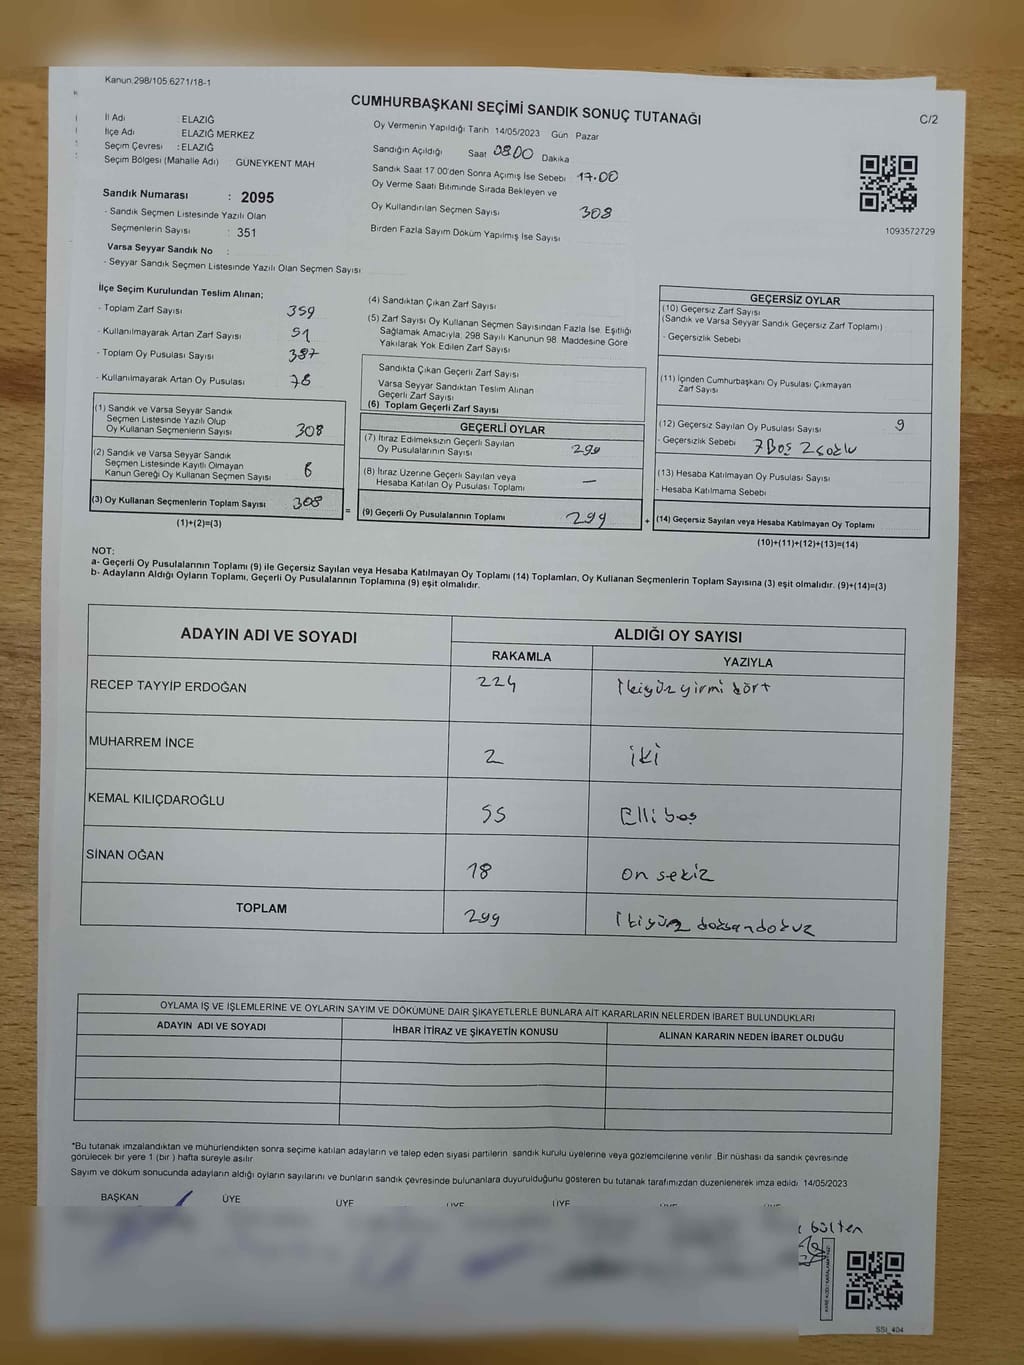 Kanun.298/105.6271/18-1
CUMHURBAŞKANI SEÇİMİ SANDIK SONUÇ TUTANAĞI
C/2
İl Adı : ELAZIĞ
İlçe Adı : ELAZIĞ MERKEZ
Seçim Çevresi : ELAZIĞ
Seçim Bölgesi (Mahalle Adı) : GÜNEYKENT MAH
Sandık Numarası : 2095
- Sandık Seçmen Listesinde Yazılı Olan
Seçmenlerin Sayısı : 351
Varsa Seyyar Sandık No :
- Seyyar Sandık Seçmen Listesinde Yazılı Olan Seçmen Sayısı
Oy Vermenin Yapıldığı Tarih 14/05/2023 Gün Pazar
Sandığın Açıldığı Saat 08.00 Dakika
Sandık Saat 17 00'den Sonra Açımış İse Sebebi 17.00
Oy Verme Saati Bitiminde Sırada Bekleyen ve
Oy Kullandırılan Seçmen Sayısı 308
Birden Fazla Sayım Döküm Yapılmış İse Sayısı
1093572729
İlçe Seçim Kurulundan Teslim Alınan;
- Toplam Zarf Sayısı 359
- Kullanılmayarak Artan Zarf Sayısı 51
- Toplam Oy Pusulası Sayısı 387
- Kullanılmayarak Artan Oy Pusulası 78
(1) Sandık ve Varsa Seyyar Sandık
Seçmen Listesinde Yazılı Olup
Oy Kullanan Seçmenlerin Sayısı 308
(2) Sandık ve Varsa Seyyar Sandık
Seçmen Listesinde Kayıtlı Olmayan
Kanun Gereği Oy Kullanan Seçmen Sayısı
(3) Oy Kullanan Seçmenlerin Toplam Sayısı 308
(1)+(2)=(3)
=
(4) Sandıktan Çıkan Zarf Sayısı
(5) Zarf Sayısı Oy Kullanan Seçmen Sayısından Fazla İse, Eşitliği
Sağlamak Amacıyla, 298 Sayılı Kanunun 98. Maddesine Göre
Yakılarak Yok Edilen Zarf Sayısı
Sandıkta Çıkan Geçerli Zarf Sayısı
Varsa Seyyar Sandıktan Teslim Alınan
Geçerli Zarf Sayısı
(6) Toplam Geçerli Zarf Sayısı
GEÇERLİ OYLAR
(7) İtiraz Edilmeksizin Geçerli Sayılan
Oy Pusulalarının Sayısı 299
(8) İtiraz Üzerine Geçerli Sayılan veya
Hesaba Katılan Oy Pusulası Toplamı —
(9) Geçerli Oy Pusulalarının Toplamı 299
+
GEÇERSİZ OYLAR
(10) Geçersiz Zarf Sayısı
(Sandık ve Varsa Seyyar Sandık Geçersiz Zarf Toplamı)
- Geçersizlik Sebebi
(11) İçinden Cumhurbaşkanı Oy Pusulası Çıkmayan
Zarf Sayısı
(12) Geçersiz Sayılan Oy Pusulası Sayısı 9
- Geçersizlik Sebebi 7 Boş 2
(13) Hesaba Katılmayan Oy Pusulası Sayısı
- Hesaba Katılmama Sebebi
(14) Geçersiz Sayılan veya Hesaba Katılmayan Oy Toplamı
(10)+(11)+(12)+(13)=(14)
NOT:
a- Geçerli Oy Pusulalarının Toplamı (9) ile Geçersiz Sayılan veya Hesaba Katılmayan Oy Toplamı (14) Toplamları, Oy Kullanan Seçmenlerin Toplam Sayısına (3) eşit olmalıdır. (9)+(14)=(3)
b- Adayların Aldığı Oyların Toplamı, Geçerli Oy Pusulalarının Toplamına (9) eşit olmalıdır.
ADAYIN ADI VE SOYADI ALDIĞI OY SAYISI
RAKAMLA YAZIYLA
RECEP TAYYİP ERDOĞAN 224 İkiyüzyirmi dört
MUHARREM İNCE 2 iki
KEMAL KILIÇDAROĞLU 55 Elli beş
SİNAN OĞAN 18 on sekiz
TOPLAM 299 İkiyüz doksandokuz
OYLAMA İŞ VE İŞLEMLERİNE VE OYLARIN SAYIM VE DÖKÜMÜNE DAİR ŞİKAYETLERLE BUNLARA AİT KARARLARIN NELERDEN İBARET BULUNDUKLARI
ADAYIN ADI VE SOYADI İHBAR İTİRAZ VE ŞİKAYETİN KONUSU ALINAN KARARIN NEDEN İBARET OLDUĞU
*Bu tutanak imzalandıktan ve mühürlendikten sonra seçime katılan adayların ve talep eden siyasi partilerin sandık kurulu üyelerine veya gözlemcilerine verilir. Bir nüshası da sandık çevresinde
görülecek bir yere 1 (bir ) hafta süreyle asılır
Sayım ve döküm sonucunda adayların aldığı oyların sayılarını ve bunların sandık çevresinde bulunanlara duyurulduğunu gösteren bu tutanak tarafımızdan düzenlenerek imza edildi. 14/05/2023
BAŞKAN ÜYE ÜYE ÜYE ÜYE
SSI_404